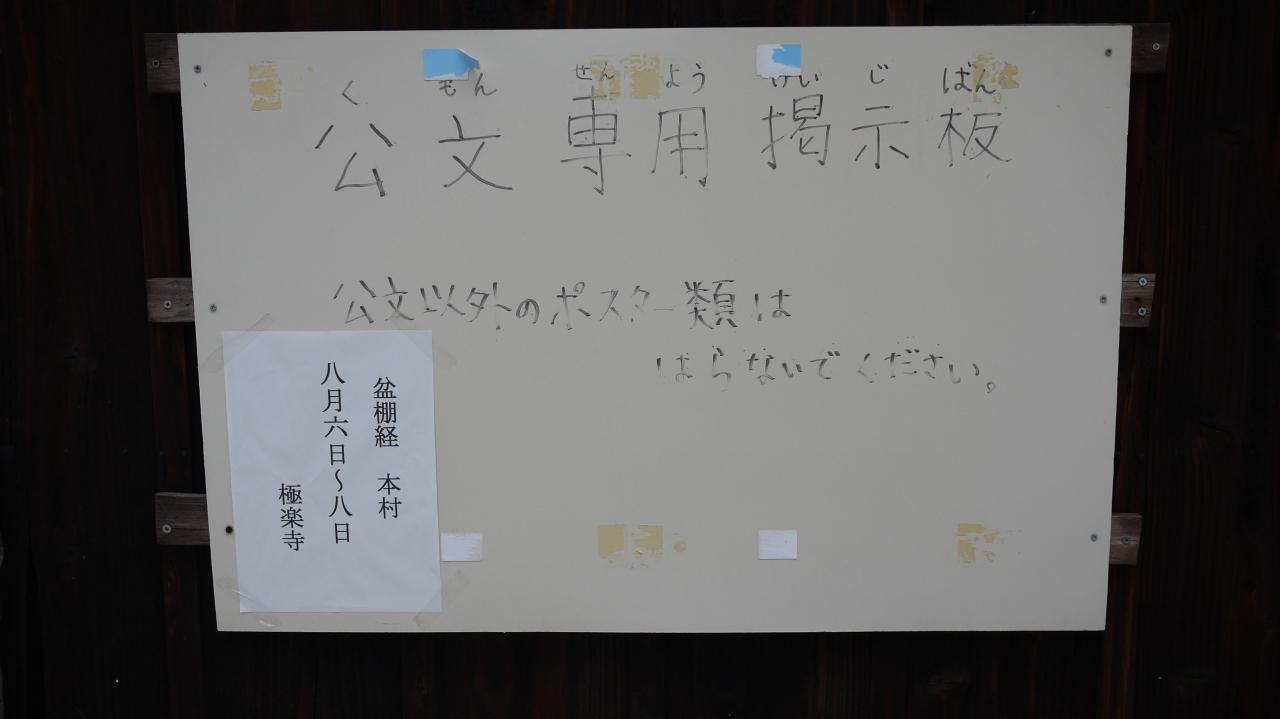 く もん せん よう けい じ ばん
公文専用掲示板
公文以外のポスター類は
はらないでください。
盆棚経 本村
八月六日～八日
極楽寺